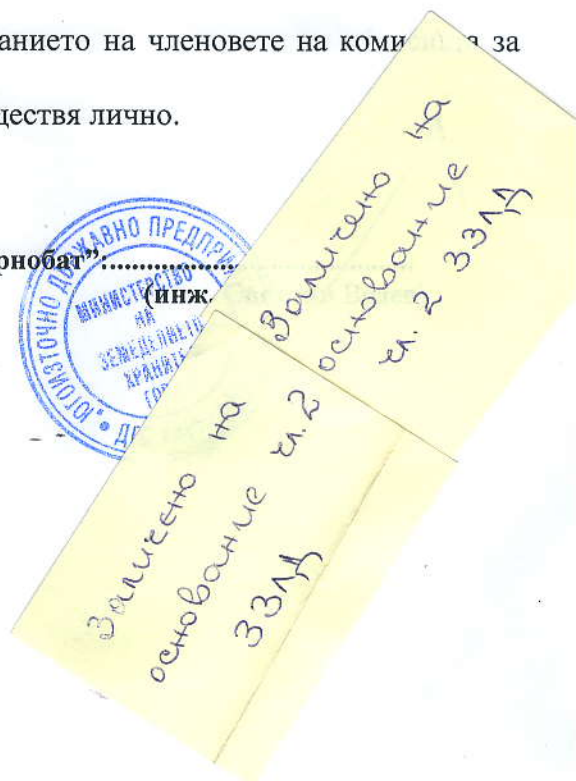 анието на членовете на комисията за
ществя лично.
рнобат”:..................
(инж.
ЮГОИЗТОЧНО ДЪРЖАВНО ПРЕДПРИ
МИНИСТЕРСТВО
НА
ЗЕМЕДЕЛИЕТО
ХРАНИТЕ
ГОР
Заличено на
основание
чл. 2 ЗЗЛД
Заличено на
основание чл. 2
ЗЗЛД